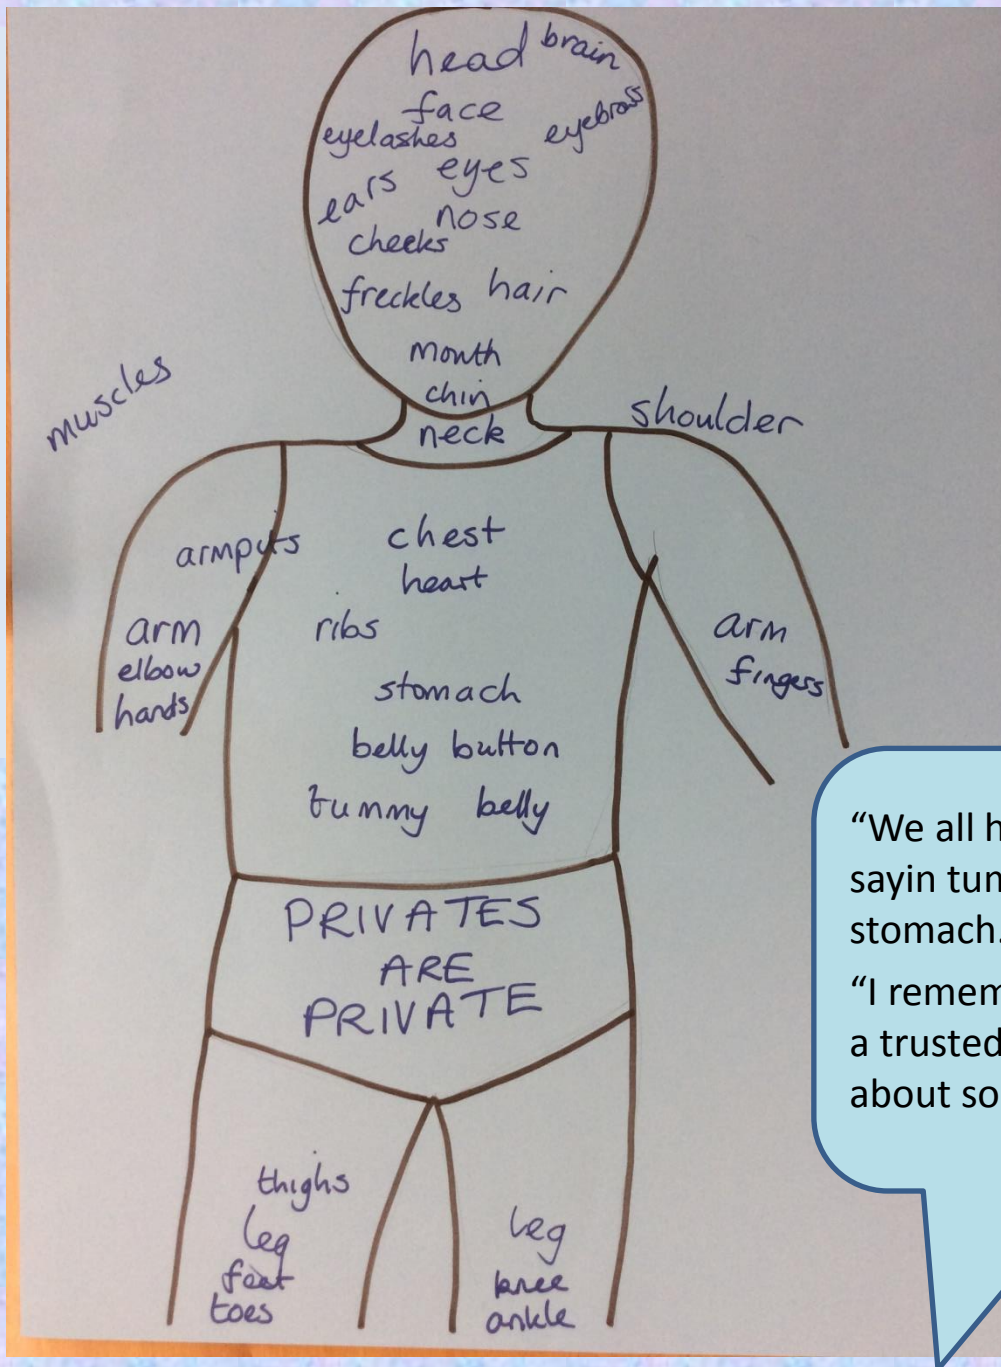 head brain
face
eyelashes eyebrows
ears eyes
nose
cheeks
freckles hair
mouth
chin
neck
muscles
shoulder
armputs
chest
heart
ribs
arm
elbow
hands
arm
fingers
stomach
belly button
tummy belly
PRIVATES
ARE
PRIVATE
thighs
leg
feet
toes
leg
knee
ankle
“We all h
sayin tum
stomach.
“I remem
a trusted
about so